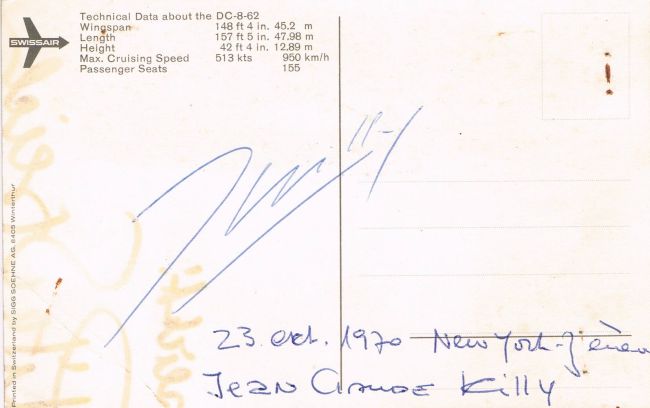 SWISSAIR
Technical Data about the DC-8-62
Wingspan 148 ft 4 in. 45.2 m
Length 157 ft 5 in. 47.98 m
Height 42 ft 4 in. 12.89 m
Max. Cruising Speed 513 kts 950 km/h
Passenger Seats 155
Printed in Switzerland by SIGG SOEHNE AG, 8405 Winterthur
23. okt. 1970 New York-Genève
Jean Claude Killy